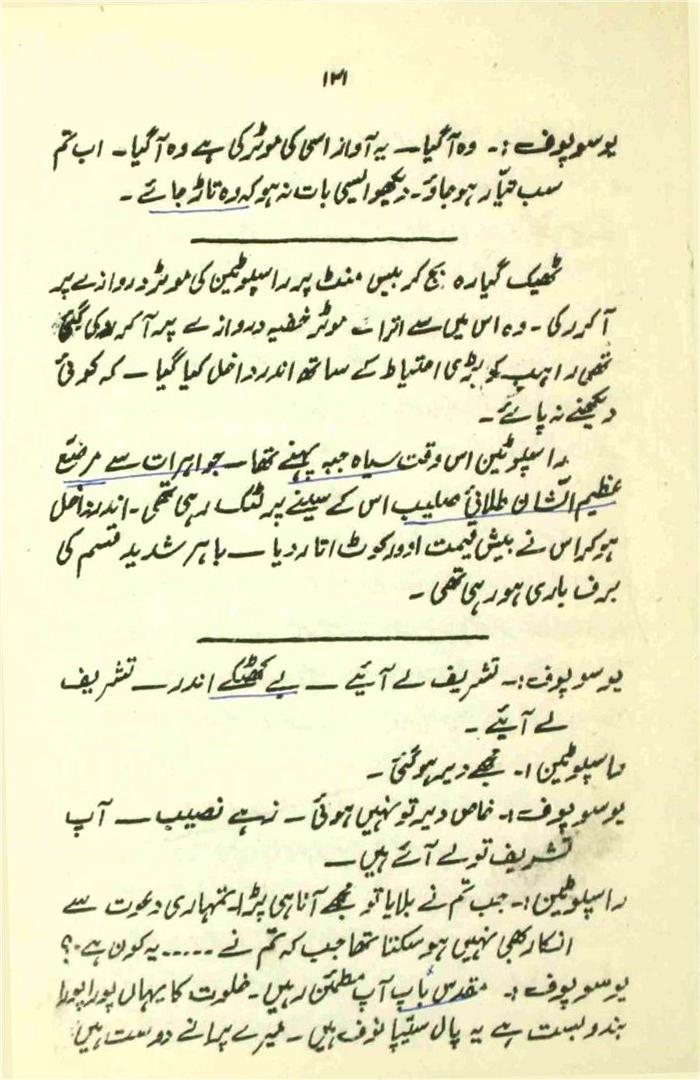 ۱۲۱
یوسوپوف :۔ وہ آگیا۔ یہ آواز اسی کی موٹر کی ہے وہ آگیا۔ اب تم
سب تیّار ہو جاؤ۔ دیکھو ایسی بات نہ ہو کہ وہ تاڑ جائے۔
ٹھیک گیارہ بج کر بیس منٹ پر راسپوٹین کی موٹر دروازے پر
آکر رکی۔ وہ اس میں سے اترا۔ موٹر خفیہ دروازے پر آکر لائی گئی
تھی راہب کو بڑی احتیاط کے ساتھ اندر داخل کیا گیا۔ کہ کوئی
دیکھنے نہ پائے۔
راسپوٹین اس وقت سیاہ جبہ پہنے تھا۔ جواہرات سے مرصّع
عظیم الشّان طلائی صلیب اس کے سینے پر لٹک رہی تھی۔ اندر داخل
ہو کر اس نے بیش قیمت اوورکوٹ اتار دیا۔ باہر شدید قسم کی
برف باری ہو رہی تھی۔
یوسوپوف :۔ تشریف لے آئیے۔ بے کھٹکے اندر۔ تشریف
لے آیئے۔
راسپوٹین :۔ مجھے دیر ہو گئی۔
یوسوپوف :۔ خاص دیر تو نہیں ہوئی۔ زہے نصیب۔ آپ
تشریف تو لے آئے ہیں۔
راسپوٹین :۔ جب تم نے بلایا تو مجھے آنا ہی پڑا۔ تمہاری دعوت سے
انکار بھی نہیں ہو سکتا تھا جب کہ تم نے ..... یہ کون ہے۔؟
یوسوپوف :۔ مقدس باپ آپ مطمئن رہیں۔ خلوت کا یہاں پورا پورا
بندوبست ہے یہ پال سٹیپانوف ہیں۔ میرے پرانے دوست ہیں